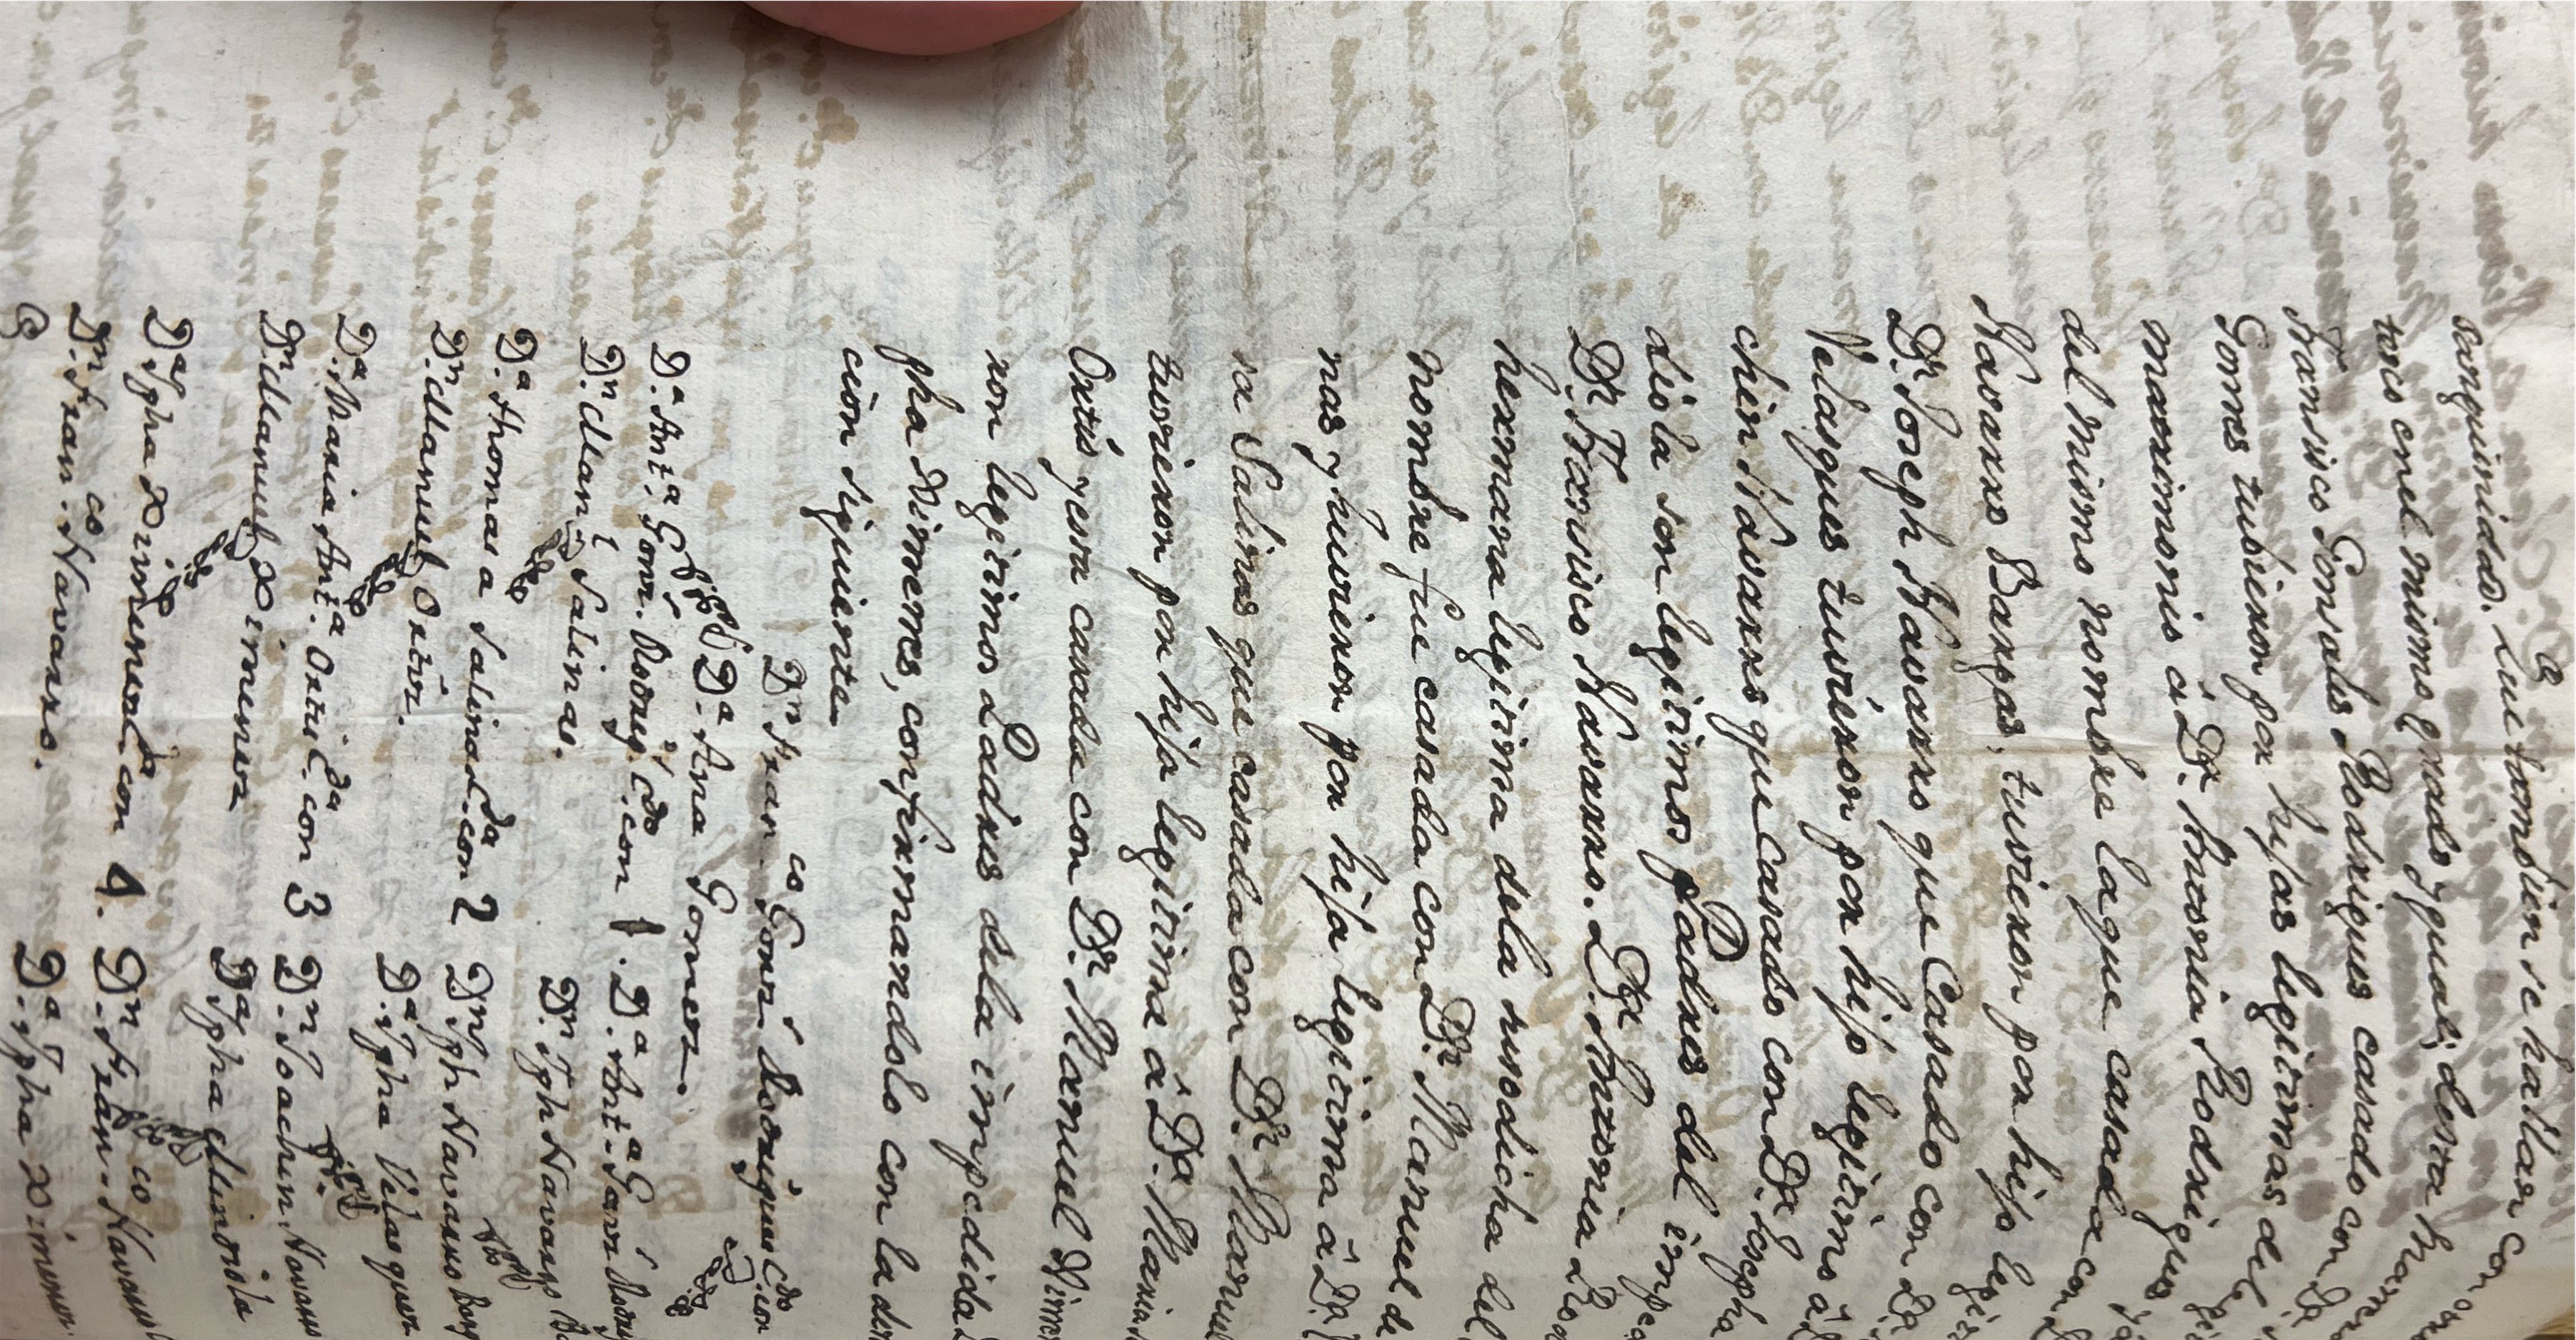 sanguinidad. Que tambien se hallan con otro
tesco en el mismo grado ygual; desta Manera
Fransisco Gonsales Rodrigues casado con Dª.
Gomes tubieron por hijas legitimas de legi
matrimonio â Dª. Antonia Rodrigues y â
del mismo nombre la que casada con D
Navarro Bargas, tuvieron por hijo legit
Dn. Joseph Navarro que Casado con Dª.
Velasques tuvieron por hijo legitimo â D
chin Navarro que casado con Dª. Josepha
diola son legitimos Padres del impe
Dn. Fransisco Navarro. Dª. Antonia Rod
hermana legitima dela susodicha del
nombre fue casada con Dn. Manuel de
nas y huvieron por hija legitima â Dª.
sa Salinas que casada con Dn. Manuel
tuvieron por hija legitima â Dª. Maria
Ortis y esta casada con Dn. Manuel Xime
ron legitimos Padres dela impedida D
pha Ximenes, confirmandolo con la de
cion siguiente
Dn. Franco. Gonz. Rodrigues Cdo. con
Dª. Ana Gomez.
Dª. Antª. Gonz. Rodrig. Cdo. con 1. Dª. Antª. Gavz Rodrig
Dn. Manl. Salinas. Dn. Jph Navarro Ba
Dª. thomasa Salinas Cda. con 2 Dn Jph Navarro Barg
Dn. Manuel Ortiz. Dª. Jpha Velasquez
Dª. Maria Antª. Ortiz Cda. con 3 Dn. Joachin Navarro
Dn. Manuel Ximenez Dª Jpha Mindiola
Dª Jpha Ximenez Cda. con 4. Dn. Franco. Navarro
Dn. Franco. Navarro. Dª. Jpha Ximenez.